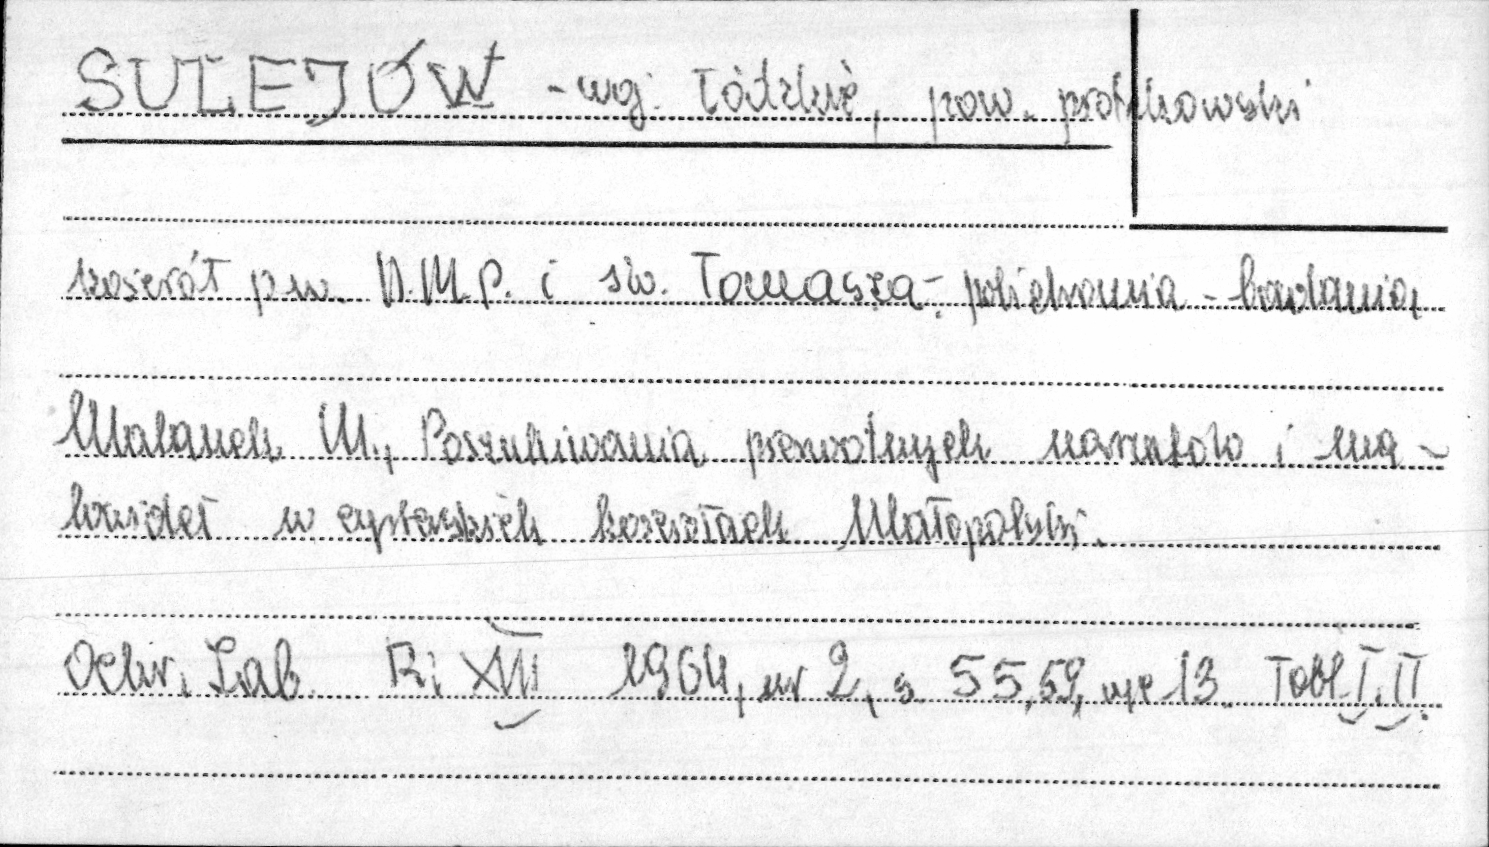 SULEJÓW - woj. Łódzkie, pow. piotrkowski
kościół p.w. N.M.P. i św. Tomasza - polichromia - badania,
Malanek M., Poszukiwania pierwotnych narzutów i ma-
lowideł w cysterskich kościołach Małopolski.
Ochr. Zab. R. XVII 1964, nr 2, s. 55, 59, ryc 13. Tabl. I, II.